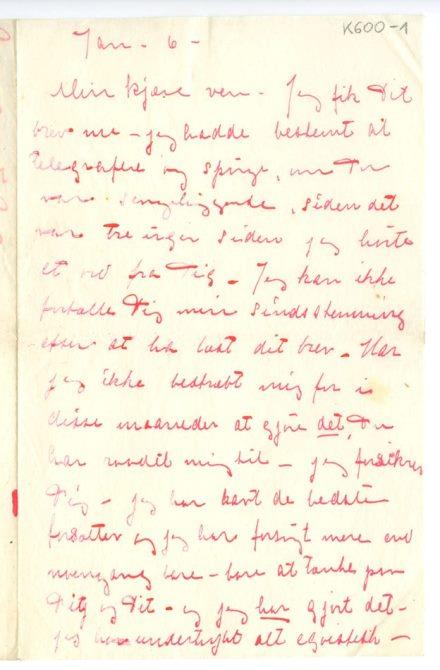 K600-1
Jan - 6 -
Min kjære ven - Jeg fik Dit
brev nu - jeg hadde bestemt at
telegrafere og spørge, om Du
var sengeliggende, siden det
var tre uger siden jeg hørte
et ord fra Dig - Jeg kan ikke
fortælle Dig min sindsstemning
efter at ha læst dit brev - Har
jeg ikke bestræbt mig for i
disse maaneder at gjøre det, Du
har raadet mig til - jeg forsikrer
Dig - jeg har læst de bedste
forfatter og jeg har forsøgt mere end
nogengang bare - bare at tænke paa
Dig og Dit - og jeg har gjort det -
jeg har undertrykt alt egoistisk -